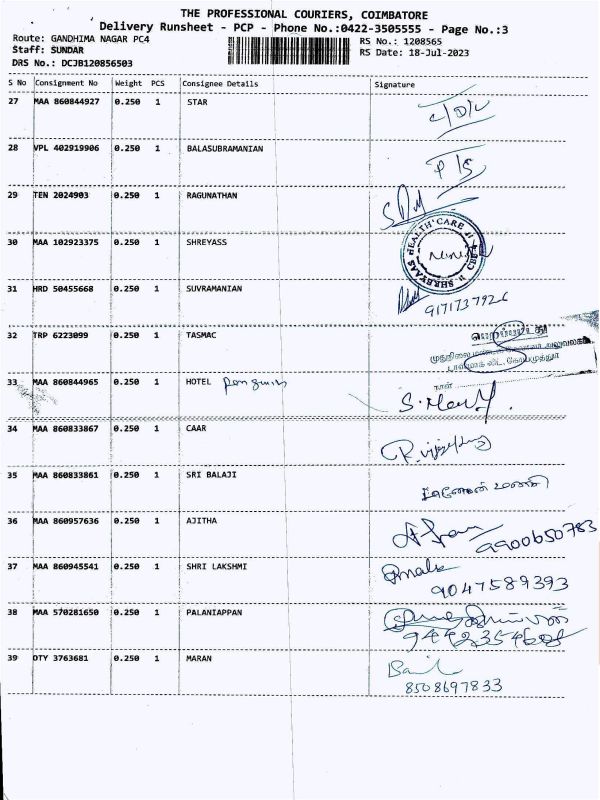 THE PROFESSIONAL COURIERS, COIMBATORE
Delivery Runsheet - PCP - Phone No.:0422-3505555 - Page No.:3
Route: GANDHIMA NAGAR PC4 RS No.: 1208565
Staff: SUNDAR RS Date: 18-Jul-2023
DRS No.: DCJB120856503
S No Consignment No Weight PCS Consignee Details Signature
27 MAA 860844927 0.250 1 STAR
28 VPL 402919906 0.250 1 BALASUBRAMANIAN
29 TEN 2024903 0.250 1 RAGUNATHAN
30 MAA 102923375 0.250 1 SHREYASS
HEALTH CARE
SHREYAAS
31 HRD 50455668 0.250 1 SUVRAMANIAN
9171737926
32 TRP 6223099 0.250 1 TASMAC
நாள்
33 MAA 860844965 0.250 1 HOTEL
34 MAA 860833867 0.250 1 CAAR
35 MAA 860833861 0.250 1 SRI BALAJI
36 MAA 860957636 0.250 1 AJITHA
9900650783
37 MAA 860945541 0.250 1 SHRI LAKSHMI
9047589393
38 MAA 570281650 0.250 1 PALANIAPPAN
39 DTY 3763681 0.250 1 MARAN
8508697833